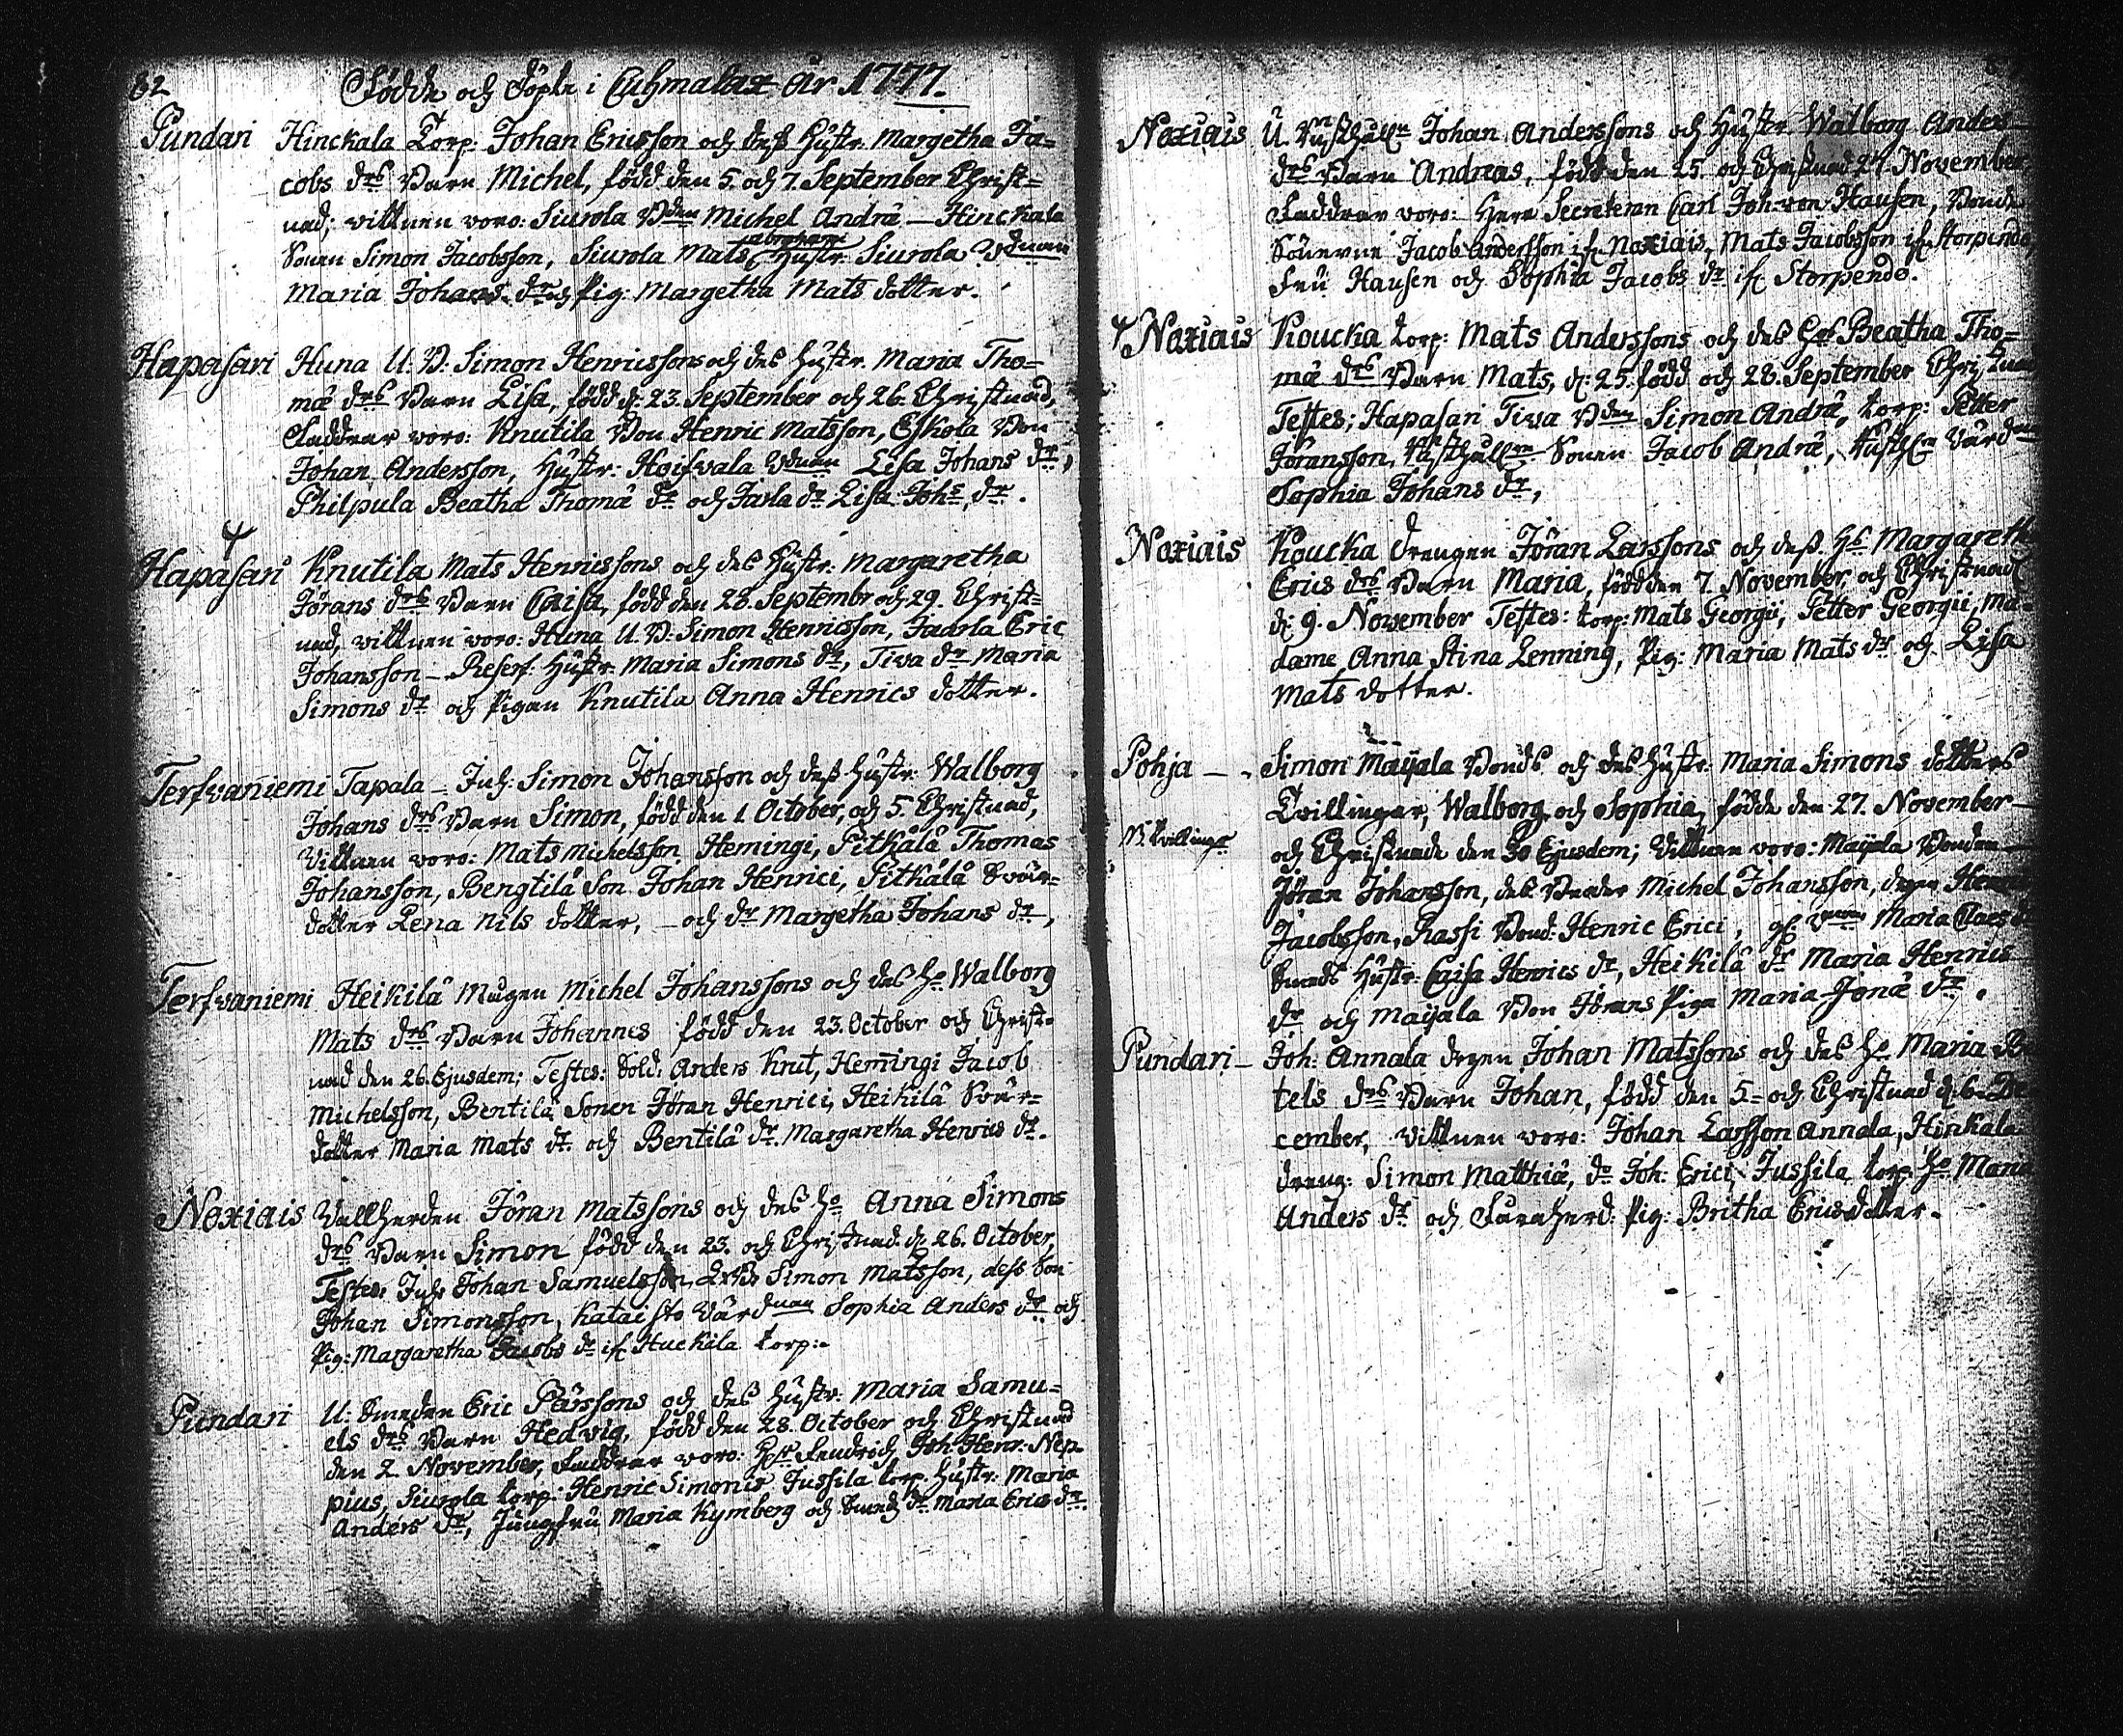 82
Födde och Döpte i Cuhmalax År 1777.
Pundari Hinckala Torp: Johan Ericsson och dess Hustr. Margetha Ja=
cobs drs Barn Michel, född den 5. och 7. September Christ=
nad; vittnen voro: Siurola Bden Michel Andræ — Hinckala
Sonen Simon Jacobsson, Siurola Mats Abrahams Hustr. Siurola
Maria Johans dr och Pig: Margetha Mats dotter.
Hapasari Huna U: B: Simon Henricssons och des Hustr. Maria Tho=
mæ drs Barn Lisa, född d: 23. September och 26. Christnad,
Faddrar voro: Knutila Bon Henric Matsson, Eskola Bon
Johan Andersson, Hustr. Hoifvala Lisa Johans dr,
Philpula Beatha Thomæ dr och Javla dr Lisa Johs. dr.
Hapasari Knutila Mats Henricssons och des Hustr: Margaretha
Jörans drs Barn Caisa, född den 28. Septembr och 29. Christ=
nad, vittnen voro: Huna U. B: Simon Henricsson, Jadrla Eric
Johansson — Reserf. Hustr. Maria Simons dr, Tiva dr Maria
Simons dr och Pigan Knutila Anna Henrics dotter.
Terfvaniemi Tapala — Inh: Simon Johansson och dess Hustr: Walborg
Johans drs Barn Simon, född den 1 October, och 5. Christnad,
Vittnen voro: Mats Michelsson Hemingi, Pitkälä Thomas
Johansson, Bengtilä Son Johan Henrici, Pitkälä Svär=
dotter Lena Nils dotter, — och dr Margetha Johans dr,
Terfvaniemi Heikilä Mågen Michel Johanssons och des Ho Walborg
Mats drs Barn Johannes född den 23. October och Christ=
nad den 26. Ejusdem; Testes: Sold: Anders Knut, Hemingi Jacob
Michelsson, Bentilä Sonen Jöran Henrici, Heikilä Svär=
dotter Maria Mats dr. och Bentilä dr. Margaretha Henrics dr.
Noxiais Vallherden Jöran Matssons och des Ho Anna Simons
drs Barn Simon född den 23. och Christnad d. 26. October,
Testes: Inh: Johan Samuelsson, Simon Matsson, dess Son
Johan Simonsson, Kataisto Värdnan Sophia Anders dr och
Pig: Margaretha Jacobs dr if: Huckala torp:
Pundari U: Smeden Eric Pärssons och des Hustr: Maria Samu=
els drs Barn Hedvig, född den 28. October och Christnad
den 2. November, Faddrar voro: Fendrich Joh: Henr: Nep=
pius, Siurola torp: Henric Simonis, Jussila torp. Hustr: Maria
Anders dr, Jungfru Maria Kymberg och Smeds dr Maria Erics dr.
Noxiais U. Rusthåll:n Johan Anderssons och Hustr Walborg Anders
drs Barn Andreas, född den 25. och Christnad 27. November
Faddrar voro: Herr Secreteran Carl Joh: von Hausen, Bonde
Sönerne Jacob Andersson if: Noxiais, Mats Jacobsson if: Storpendo,
Fru Hausen och Sophia Jacobs dr. if: Storpendo.
Noxiais Koucka torp: Mats Anderssons och des Beatha Tho=
mæ drs Barn Mats, d: 25. född och 28. September
Testes; Hapasari Tiva Bden Simon Andræ, torp: Petter
Jöransson, Rusthåll:n Sonen Jacob Andræ,
Sophia Johans dr,
Noxiais Koucka Drengen Jöran Larssons och dess. Hs Margareth
Erics drs Barn Maria, född den 7. November, och Christnad
d: 9. November Testes: torp: Mats Georgii, Petter Georgii, Ma=
dame Anna Stina Lenning, Pig: Maria Mats dr och Lisa
Mats dotter.
Pohja — Simon Maijala Bonds och des Hustr: Maria Simons dotters
Tvillingar, Walborg och Sophia, födde den 27. November —
och Christnade den 30 Ejusdem; Vittnen voro: Maijala Bonden —
Jöran Johansson, des Broder Michel Johansson,
Jacobsson, Rassi Bond: Henric Erici, Maria Claes
Smeds Hustr: Caisa Henrics dr, Heikilä dr Maria Henrics
dr och Maijala Bon Jörans Piga Maria Jonæ dr.
Pundari — Joh: Annala Johan Matssons och des Ho Maria
tels drs Barn Johan, född den 5 = och Christnad d: 6. De
cember, vittnen voro: Johan Larsson Annala, Hinkala
dreng: Simon Matthiæ, do Joh: Erici, Jussila torp. Ho Maria
Anders dr och Pig: Britha Ericsdotter.